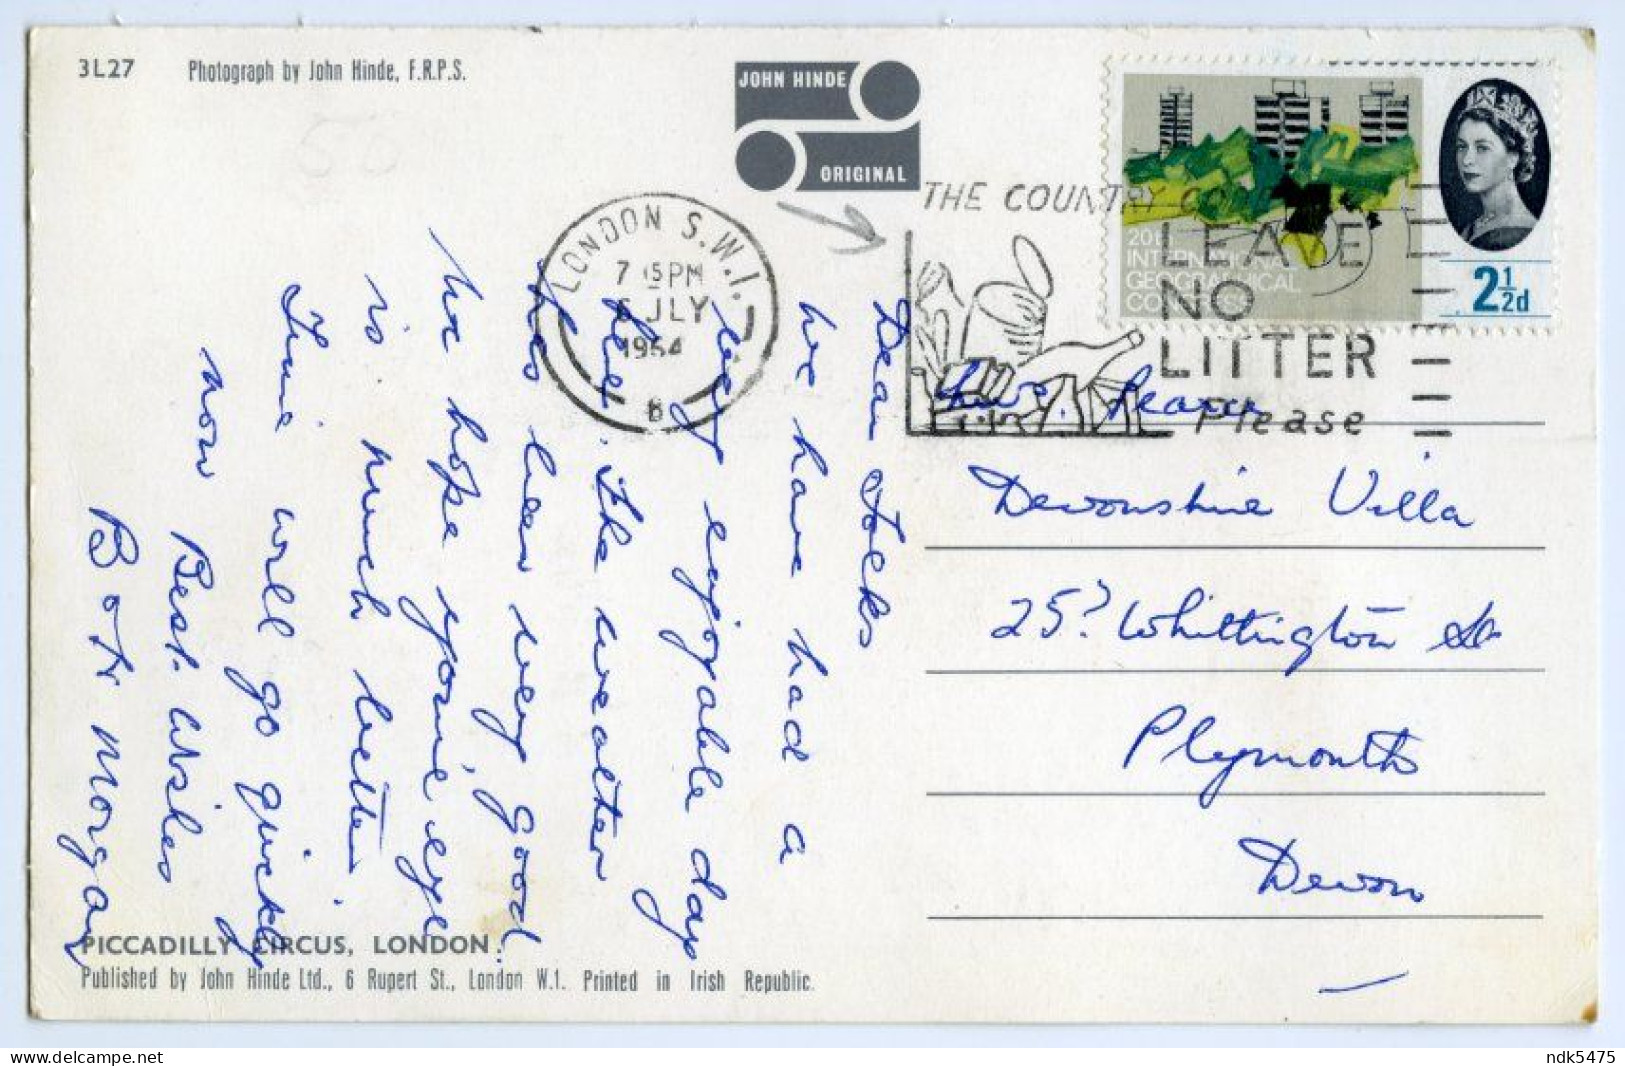 3L27
Photograph by John Hinde, F.R.P.S.
JOHN HINDE
ORIGINAL
LONDON S.W.1.
7 15PM
6 JLY
1964
B
THE COUNTRY CO
LEAVE
NO
LITTER
Please
20th
INTERNATIONAL
GEOGRAPHICAL
CONGRESS
2½d
Dear
We have had a
very enjoyable day
The weather
has been very good
We hope your eye
is much better
Time will go quickly
now Best Wishes
B Morgan
Devonshire Villa
25? Whittington St
Plymouth
Devon
PICCADILLY CIRCUS, LONDON.
Published by John Hinde Ltd., 6 Rupert St., London W.1. Printed in Irish Republic.
ndk5475